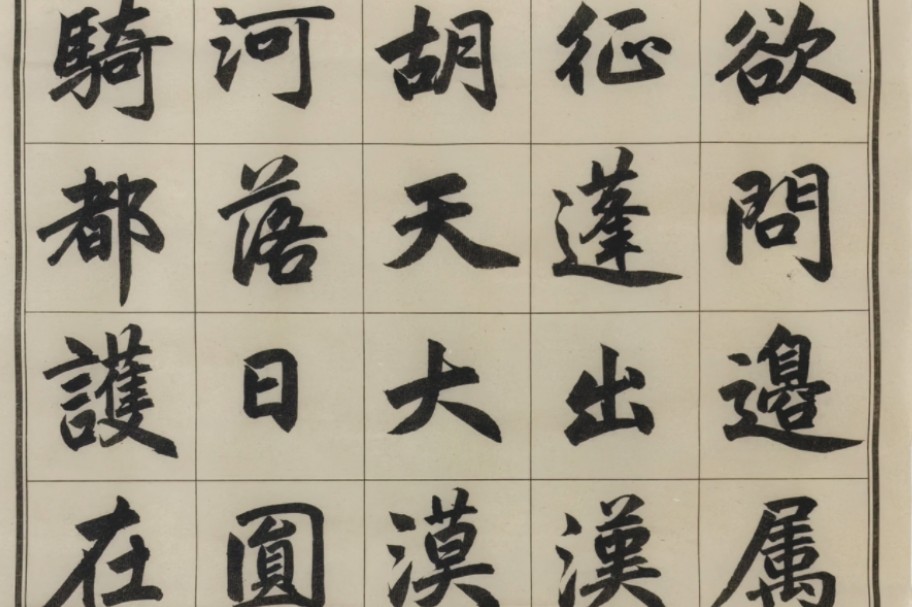 欲問邊属
征蓬出漢
胡天大漠
河落日圓
騎都護在